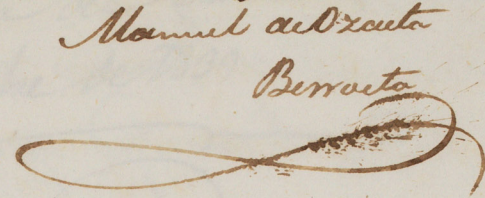 Manuel de Ozaeta
Berroeta